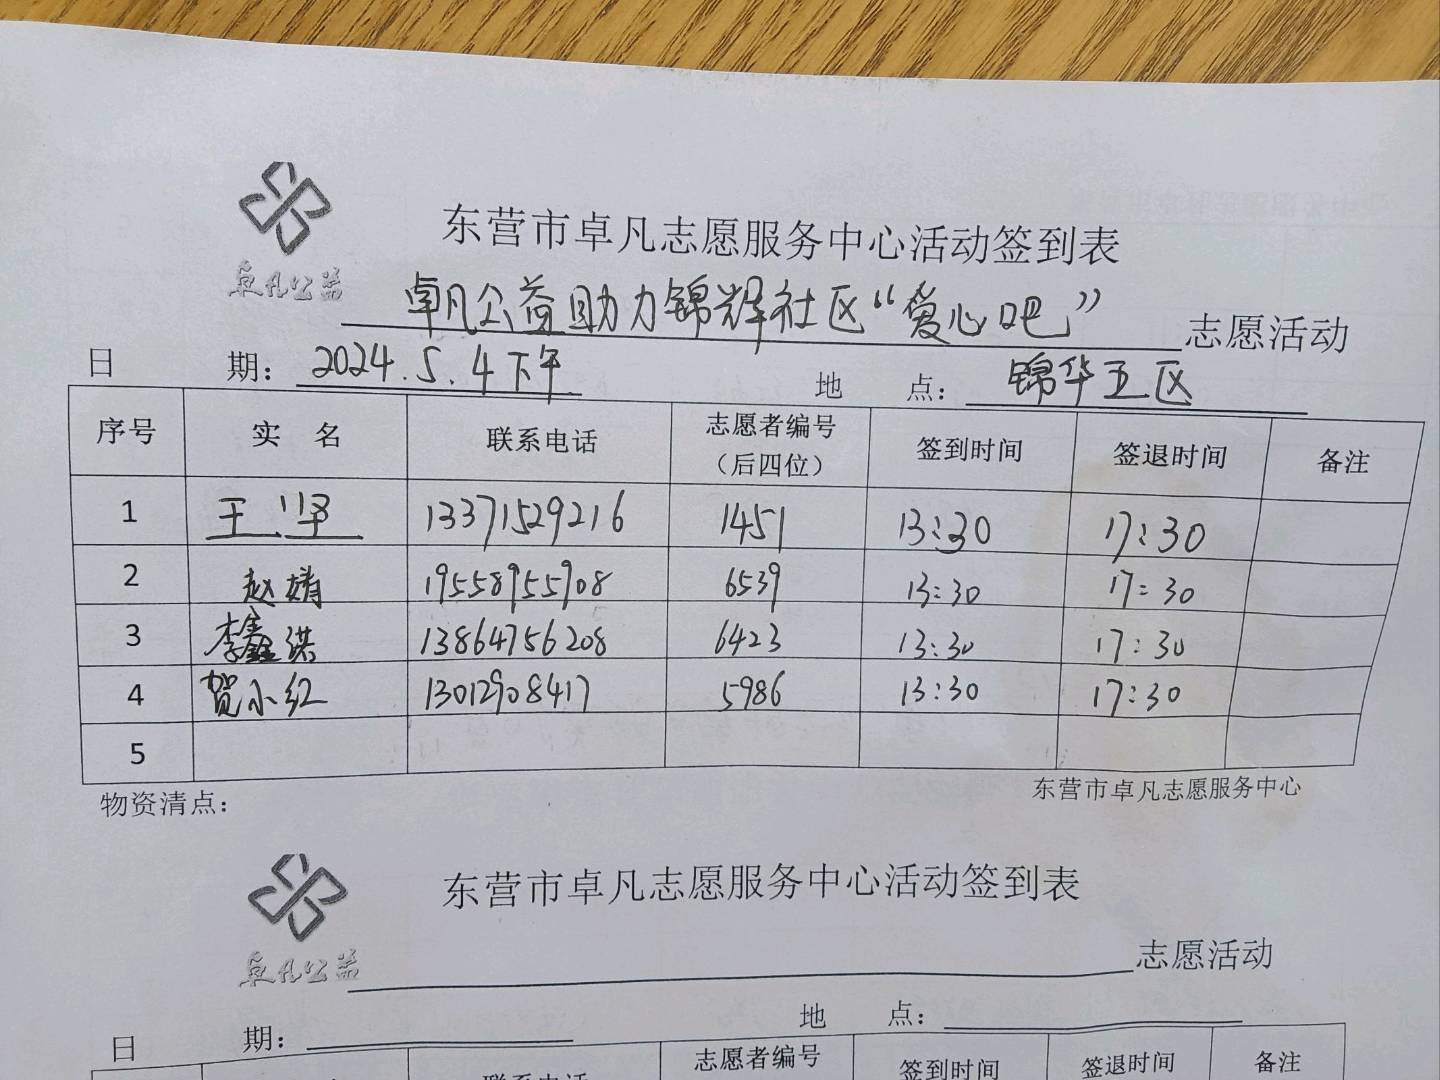 东营市卓凡志愿服务中心活动签到表
卓凡公益
卓凡公益助力锦辉社区“爱心吧”志愿活动
日 期：2024.5.4下午 地 点：锦华五区
序号 实 名 联系电话 志愿者编号（后四位） 签到时间 签退时间 备注
1 王坚 13371529216 1451 13:30 17:30
2 赵婧 19558955908 6539 13:30 17:30
3 李鑫洪 13864756208 6423 13:30 17:30
4 贺小红 13012908417 5986 13:30 17:30
5
物资清点： 东营市卓凡志愿服务中心
东营市卓凡志愿服务中心活动签到表
卓凡公益
志愿活动
日 期： 地 点：
联系电话 志愿者编号 签到时间 签退时间 备注